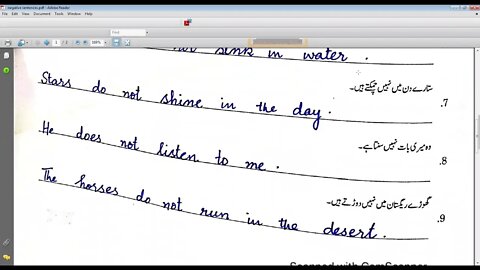 negative sentences.pdf - Adobe Reader
Find
sink in water .
ستارے دن میں نہیں چمکتے ہیں۔ .7
Stars do not shine in the day .
وہ میری بات نہیں سنتا ہے۔ .8
He does not listen to me .
گھوڑے ریگستان میں نہیں دوڑتے ہیں۔ .9
The horses do not run in the desert .
Scanned with CamScanner